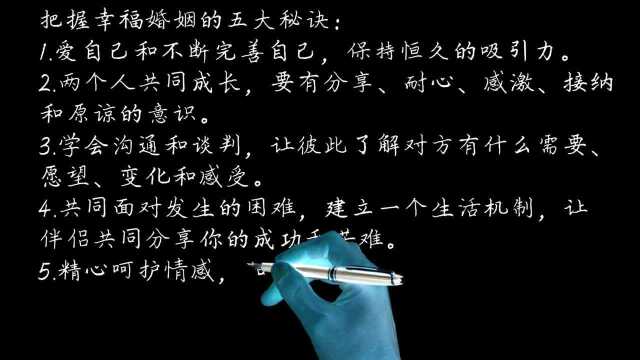 把握幸福婚姻的五大秘诀：
1.爱自己和不断完善自己，保持恒久的吸引力。
2.两个人共同成长，要有分享、耐心、感激、接纳
和原谅的意识。
3.学会沟通和谈判，让彼此了解对方有什么需要、
愿望、变化和感受。
4.共同面对发生的困难，建立一个生活机制，让
伴侣共同分享你的成功和苦难。
5.精心呵护情感，